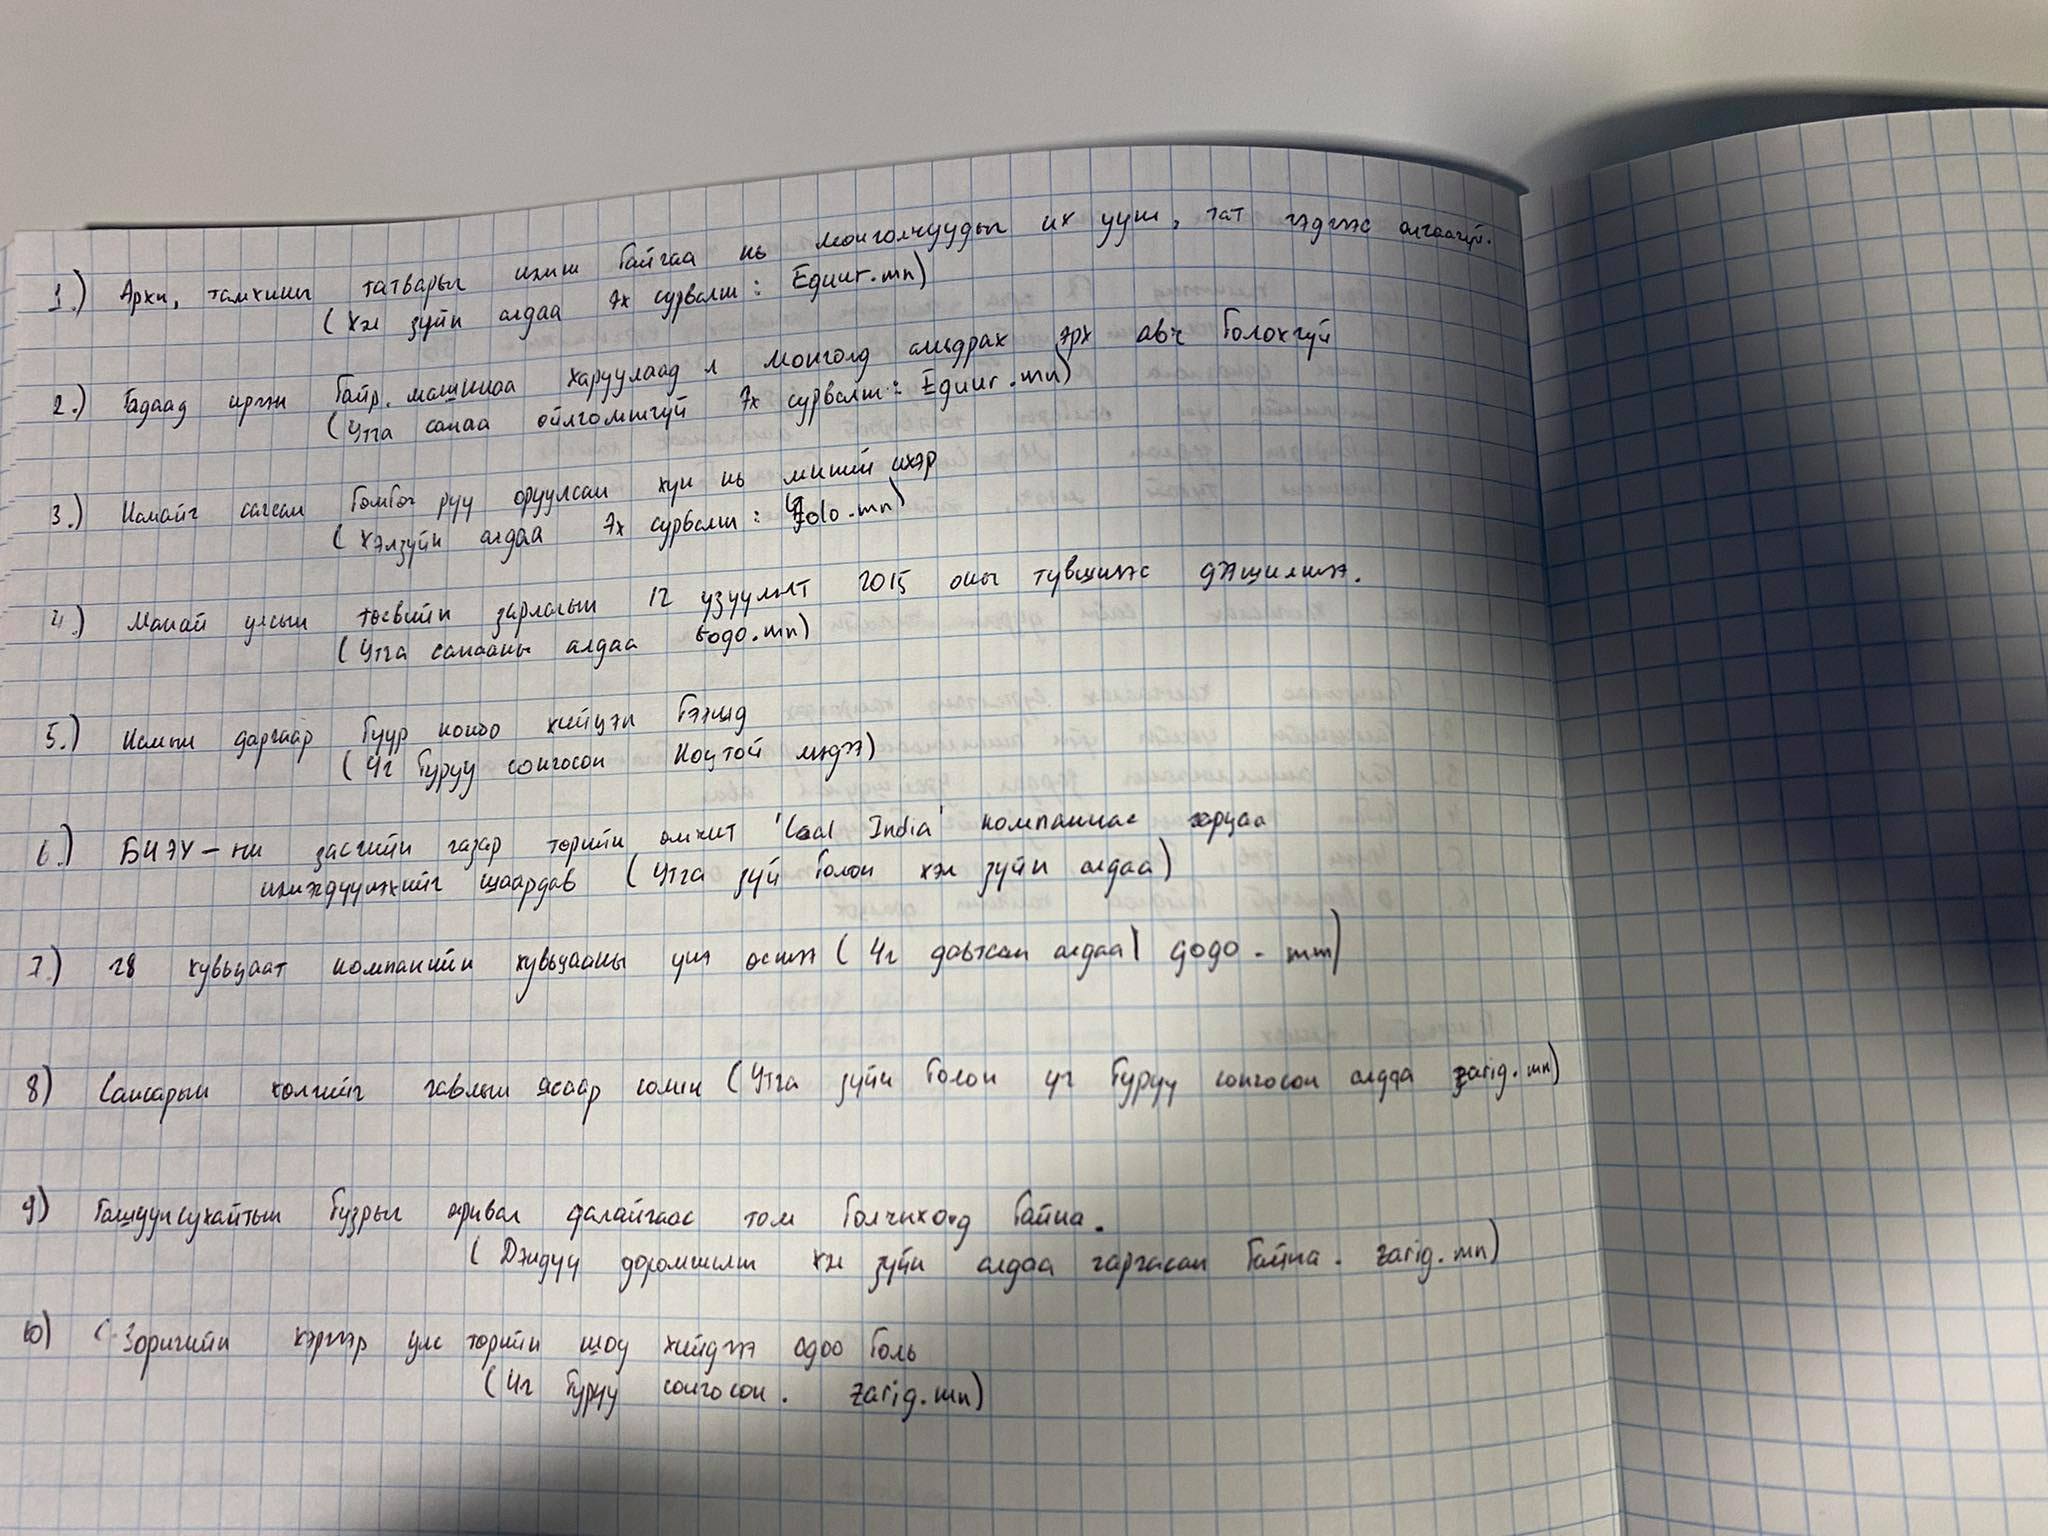 1.) Архи, тамхины татварыг нэмж байгаа нь монголчуудыг их ууж, тат гэдгээс ялгаагүй.
(Хэл зүйн алдаа Эх сурвалж: Eguur.mn)
2.) Гадаад иргэн байр, машинаа харуулаад л Монголд амьдрах эрх авч болохгүй
(Утга санаа ойлгомжгүй Эх сурвалж: Eguur.mn)
3.) Намайг сагсан бөмбөг рүү оруулсан хүн нь миний ихэр
(Хэлзүйн алдаа Эх сурвалж: Golo.mn)
4.) Манай улсын төсвийн зарлагын 12 үзүүлэлт 2015 оны түвшнээс дээшилжээ.
(Утга санааны алдаа gogo.mn)
5.) Намын даргаар буур хийцэн бээшд
(Үг буруу сонгосон Ноцтой мэдээ)
6.) БНЭУ-ни засгийн газар төрийн өмчит 'Coal India' компаниас харуцаа
нэмэгдүүлэхийг шаардав (Утга зүй болон хэл зүйн алдаа)
7.) 28 хувьцаат компанийн хувьцааны үнэ өсжээ (Үг давтсан алдаа) gogo.mn)
8) Сансарын хөлгийг гавлын ясаар сольж (Утга зүйн болон үг буруу сонгосон алдаа zarig.mn)
9) Гашуунсухайтын бузрыг арвал далайгаас том болчихоод байна.
(Дэндүү доромжилж хэл зүйн алдаа гаргасан байна. zarig.mn)
10) С.Зоригийн хэргээр улс төрийн шоу хийдгээ одоо боль
(Үг буруу сонгосон. zarig.mn)